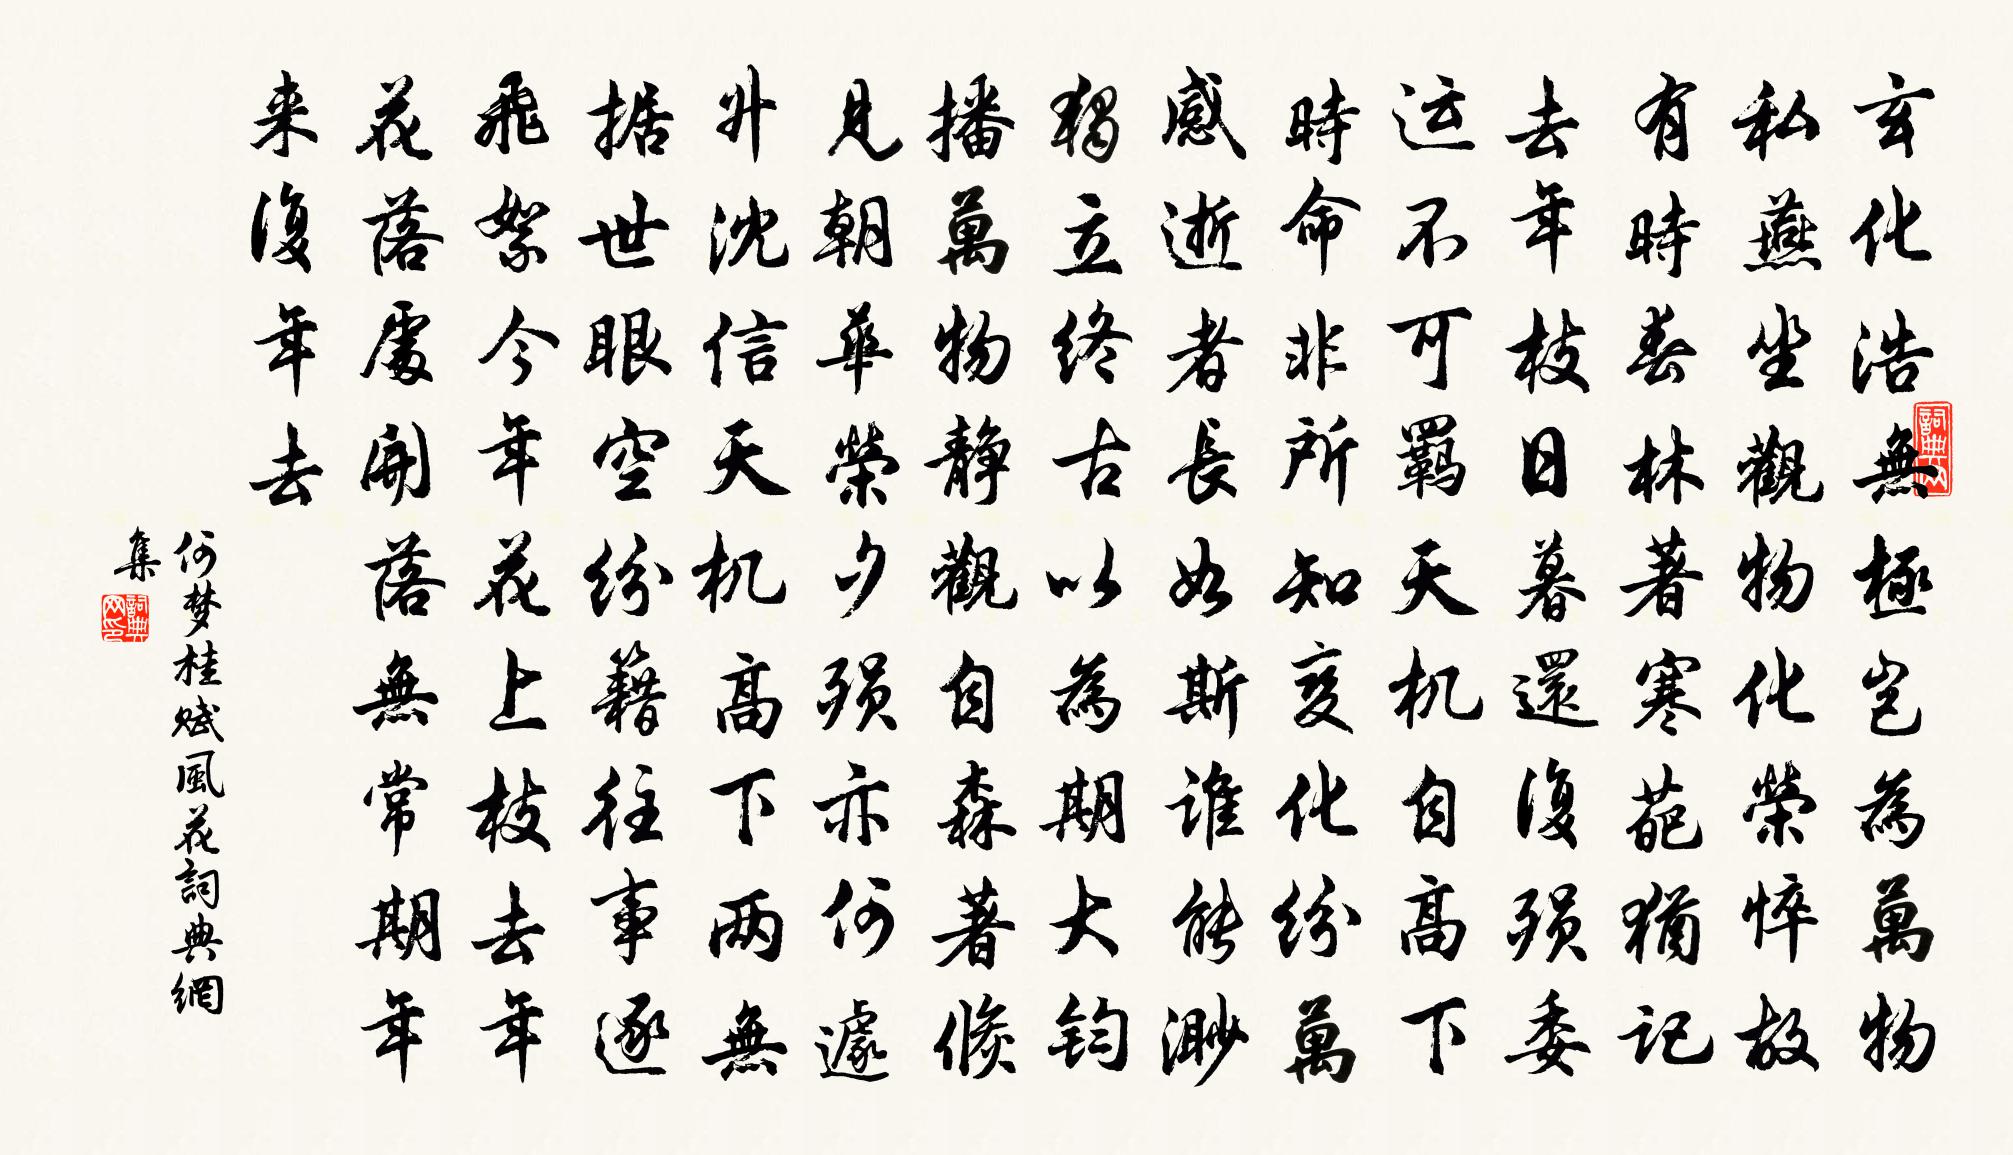 玄化浩無極岂為萬物
私燕坐觀物化榮悴故
有時春林著寒葩猶記
去年枝日暮還復殒委
运不可羁天机自高下
時命非所知变化纷萬
感逝者長如斯谁能渺
獨立终古以為期大钧
播萬物静觀自森著倏
見朝華榮夕殒亦何遽
升沈信天机高下两無
据世眼空纷籍往事逐
飛絮今年花上枝去年
花落處開落無常期年
来復年去
何梦桂赋風花詞典網
集
詞典网
詞典网印